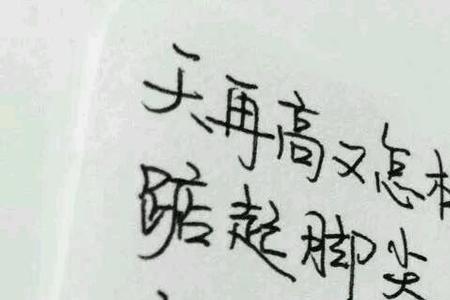 天再高又怎
踮起脚尖